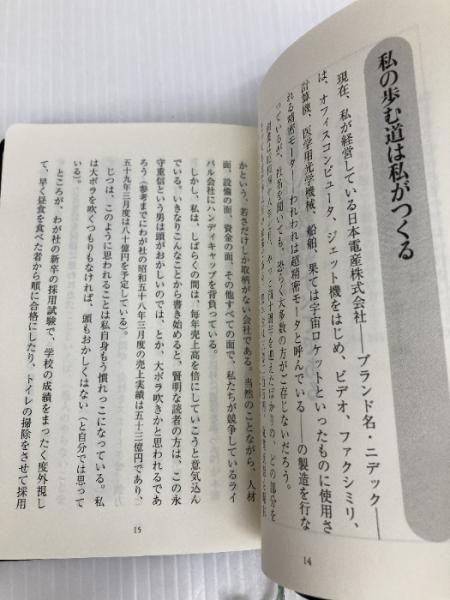 私の歩む道は私がつくる
現在、私が経営している日本電産株式会社――ブランド名・ニデック――
は、オフィスコンピュータ、ジェット機をはじめ、ビデオ、ファクシミリ、
計算機、医学用光学機械、船舶、果ては宇宙ロケットといったものに使用さ
れる精密モーター――われわれは超精密モータと呼んでいる――の製造を行な
っているが、社名を聞いても、恐らく大多数の方がご存じないだろう。
14
かという、若さだけしか取柄がない会社である。当然のことながら、人材
面、設備の面、資金の面、その他すべての面で、私たちが競争しているライ
バル会社にハンディキャップを背負っている。
しかし、私は、しばらくの間は、毎年売上高を倍にしていこうと意気込ん
でいる。いきなりこんなことから書き始めると、賢明な読者の方は、この永
守重信という男は頭がおかしいのでは、とか、大ボラ吹きかと思われるであ
ろう（参考までにわが社の昭和五十八年三月度の売上実績は五十三億円であり、
五十九年三月度は八十億円を予定している）。
じつは、このように思われることは私自身もう慣れっこになっている。私
は大ボラを吹くつもりもなければ、頭もおかしくはない（と自分では思って
いる）。
ところが、わが社の新卒の採用試験で、学校の成績をまったく度外視し
て、早く昼食を食べた者から順に合格にしたり、トイレの掃除をさせて採用
15